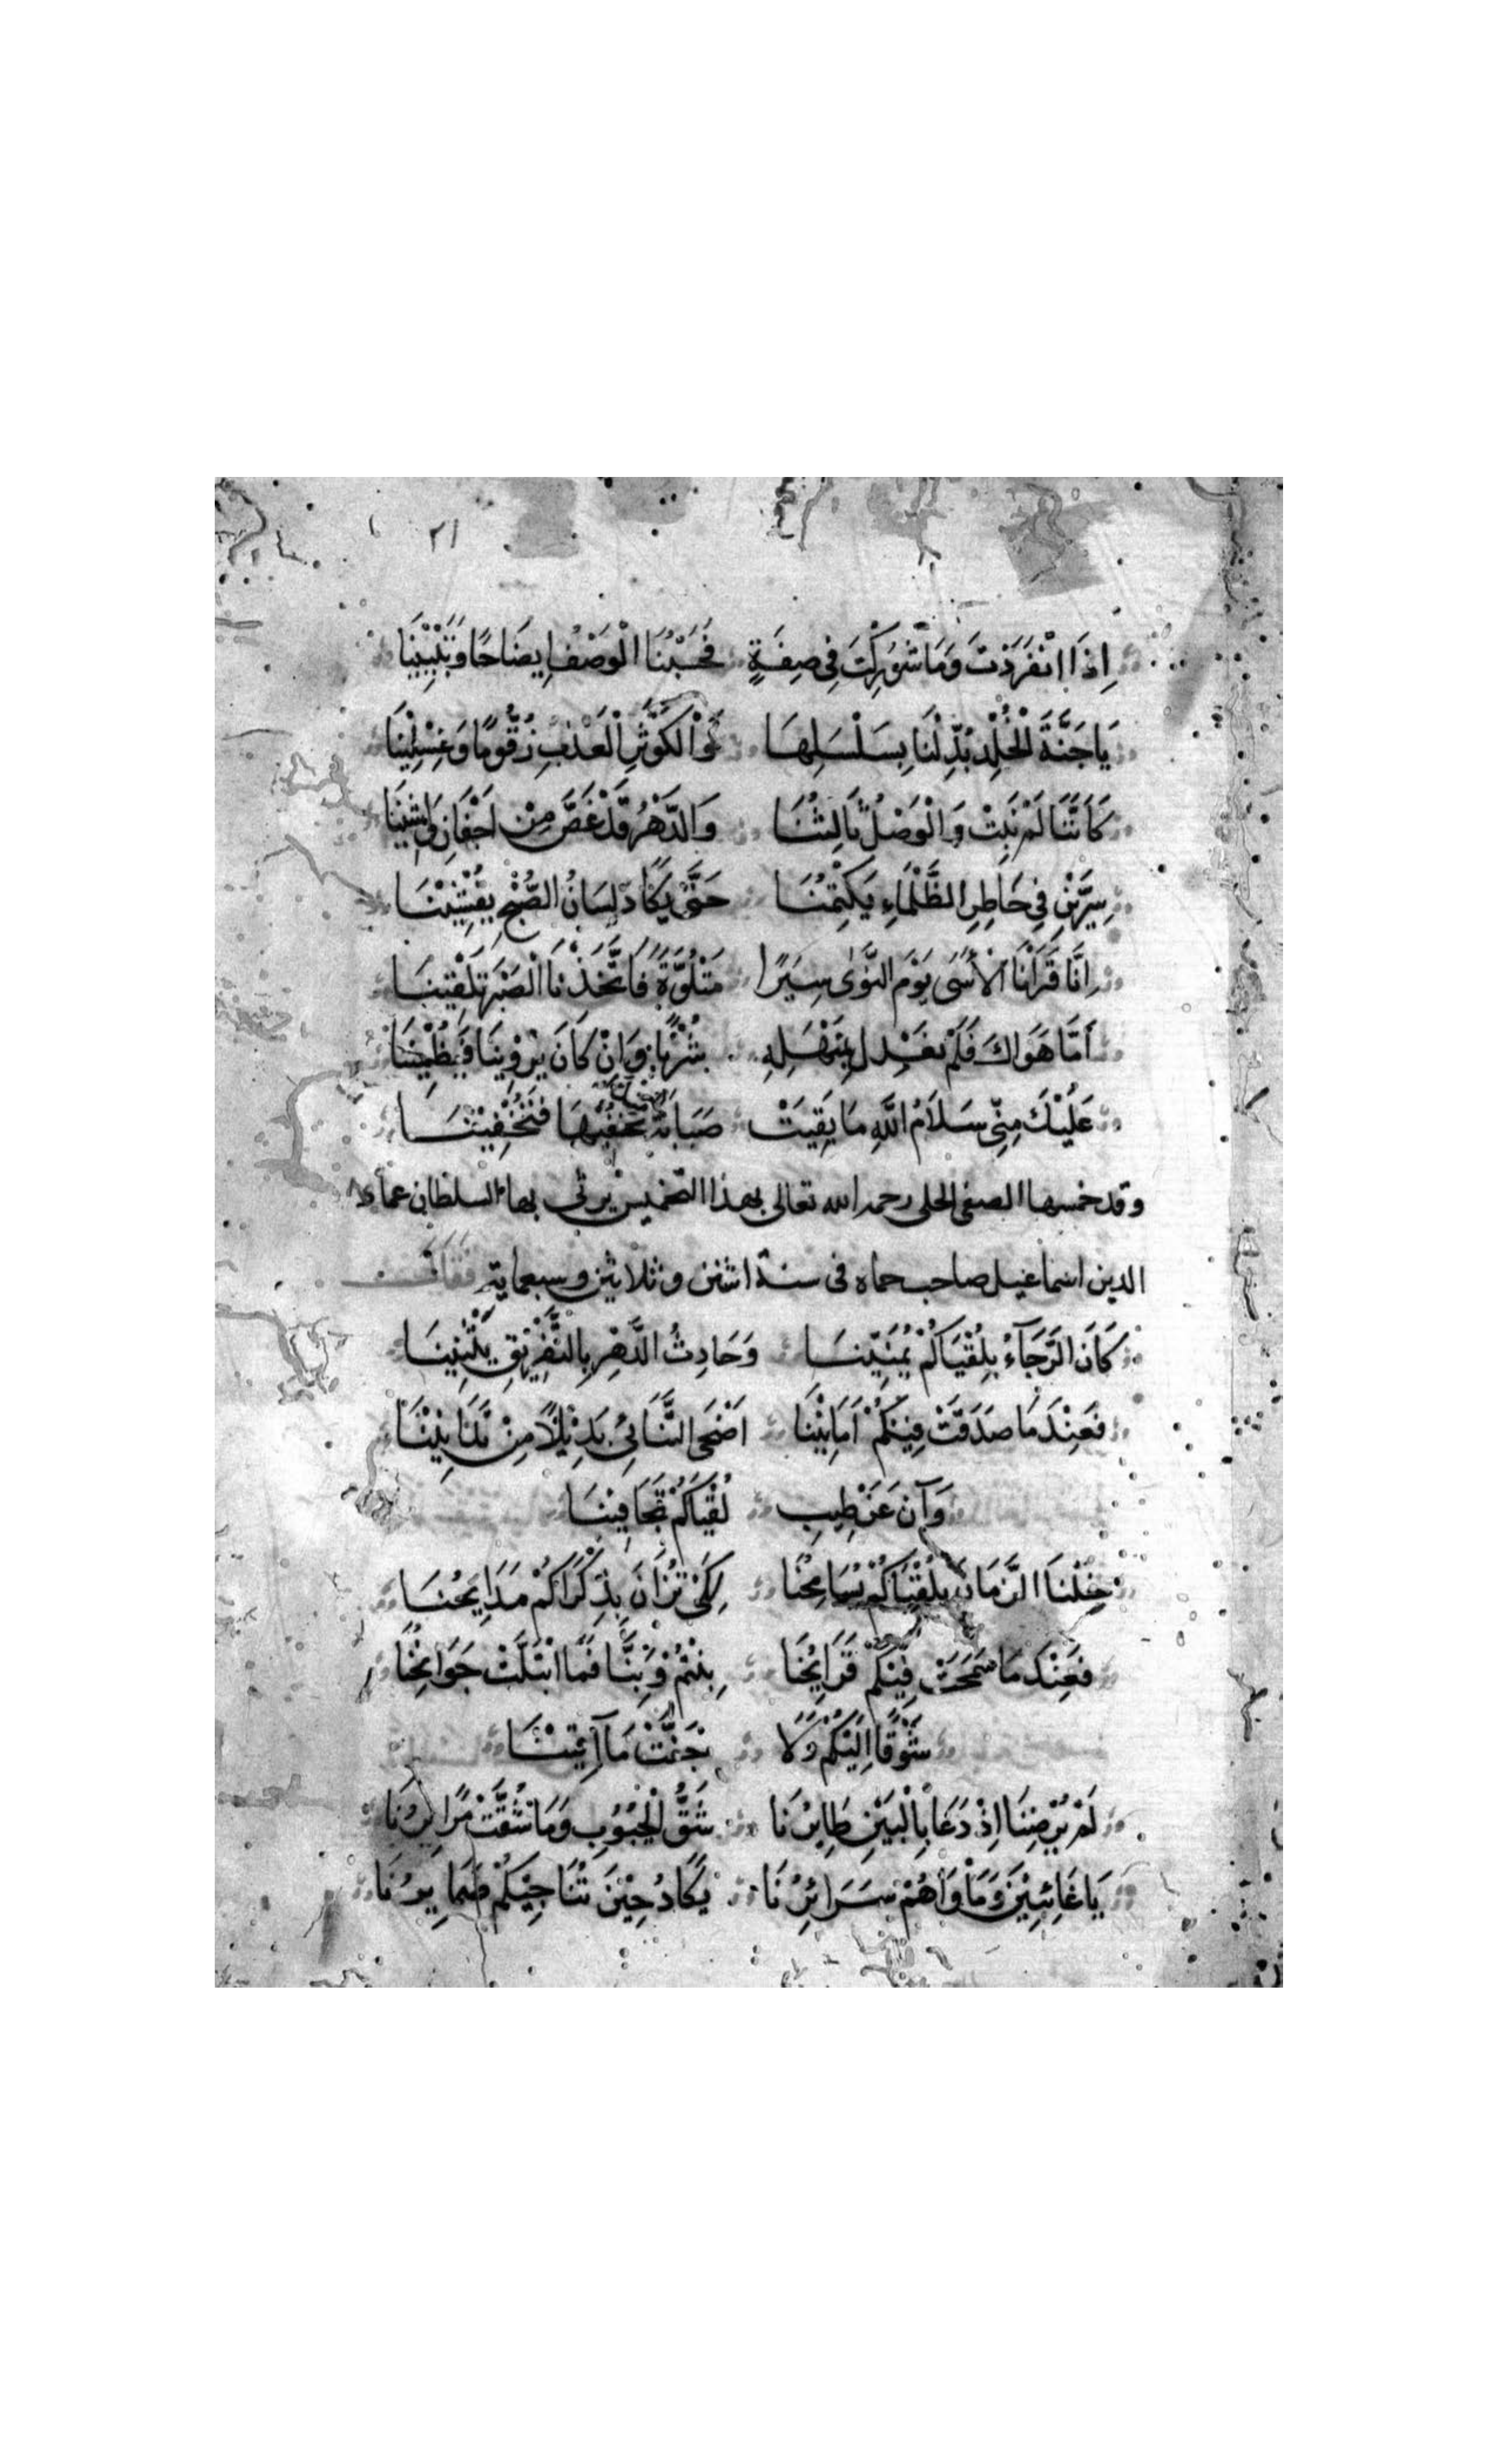 ٢١
اِذَا انْفَرَدْتَ وَمَا شُورِكْتَ فِي صِفَةٍ فَحَسْبُنَا الْوَصْفُ اِيضَاحًا وَتَبْيِينَا
يَا جَنَّةَ الْخُلْدِ بُدِّلْنَا بِسَلْسَلِهَا وَالْكَوْثَرِ الْعَذْبِ زَقُّومًا وَغِسْلِينَا
كَاَنَّنَا لَمْ نَبِتْ وَالْوَصْلُ ثَالِثُنَا وَالدَّهْرُ قَدْ غَضَّ مِنْ اَجْفَانِ وَاشِينَا
سِرَّيْنِ فِي خَاطِرِ الظَّلْمَاءِ يَكْتِمُنَا حَتَّى يَكَادَ لِسَانُ الصُّبْحِ يُفْشِيْنَا
اِنَّا قَرَاْنَا الْاَسَى يَوْمَ النَّوَى سِيَرًا مَتْلُوَّةً فَاتَّخَذْنَا الصَّبْرَ تَلْقِينَا
اَمَّا هَوَاكَ فَلَمْ نَعْدِلْ بِمَنْهَلِهِ شُرْبًا وَاِنْ كَانَ يَرْوِينَا فَيُظْمِيْنَا
عَلَيْكَ مِنِّي سَلَامُ اللهِ مَا بَقِيَتْ صَبَابَةٌ نُخْفِيهَا فَتُخْفِيْنَا
وقد خمسها الصفى الحلى رحمه الله تعالى بهذا التخميس يرثى بها السلطان عماد
الدين اسماعيل صاحب حماه فى سنة اثنين وثلاثين وسبعماية فقال
كَانَ الرَّجَآءُ بِلُقْيَاكُمْ يُمَنِّينَا وَحَادِثُ الدَّهْرِ بِالتَّفْرِيْقِ يَثْنِينَا
فَعِنْدَمَا صَدَقَتْ فِيْكُمْ اَمَانِيْنَا اَضْحَى التَّنَائِي بَدِيْلًا مِنْ تَدَانِيْنَا
وَآنَ عَنْ طِيبِ لُقْيَاكُمْ تَجَافِيْنَا
خِلْنَا الزَّمَانَ بِلُقْيَاكُمْ يُسَامِحُنَا لِكَيْ تُزَانَ بِذِكْرَاكُمْ مَدَايِحُنَا
فَعِنْدَمَا سَمَحَتْ فِيْكُمْ قَرَايِحُنَا بِنْتُمْ وَبِنَّا فَمَا ابْتَلَّتْ جَوَانِحُنَا
شَوْقًا اِلَيْكُمْ وَلَا جَفَّتْ مَآقِيْنَا
لَمْ يُرْضِنَا اِذْ دَعَا بِالْبَيْنِ طَايِرُنَا شَقُّ الْجُيُوبِ وَمَا شُقَّتْ مَرَايِرُنَا
يَا غَائِبِيْنَ وَمَاْوَاهُمْ سَرَائِرُنَا يَكَادُ حِيْنَ تُنَاجِيْكُمْ ضَمَايِرُنَا